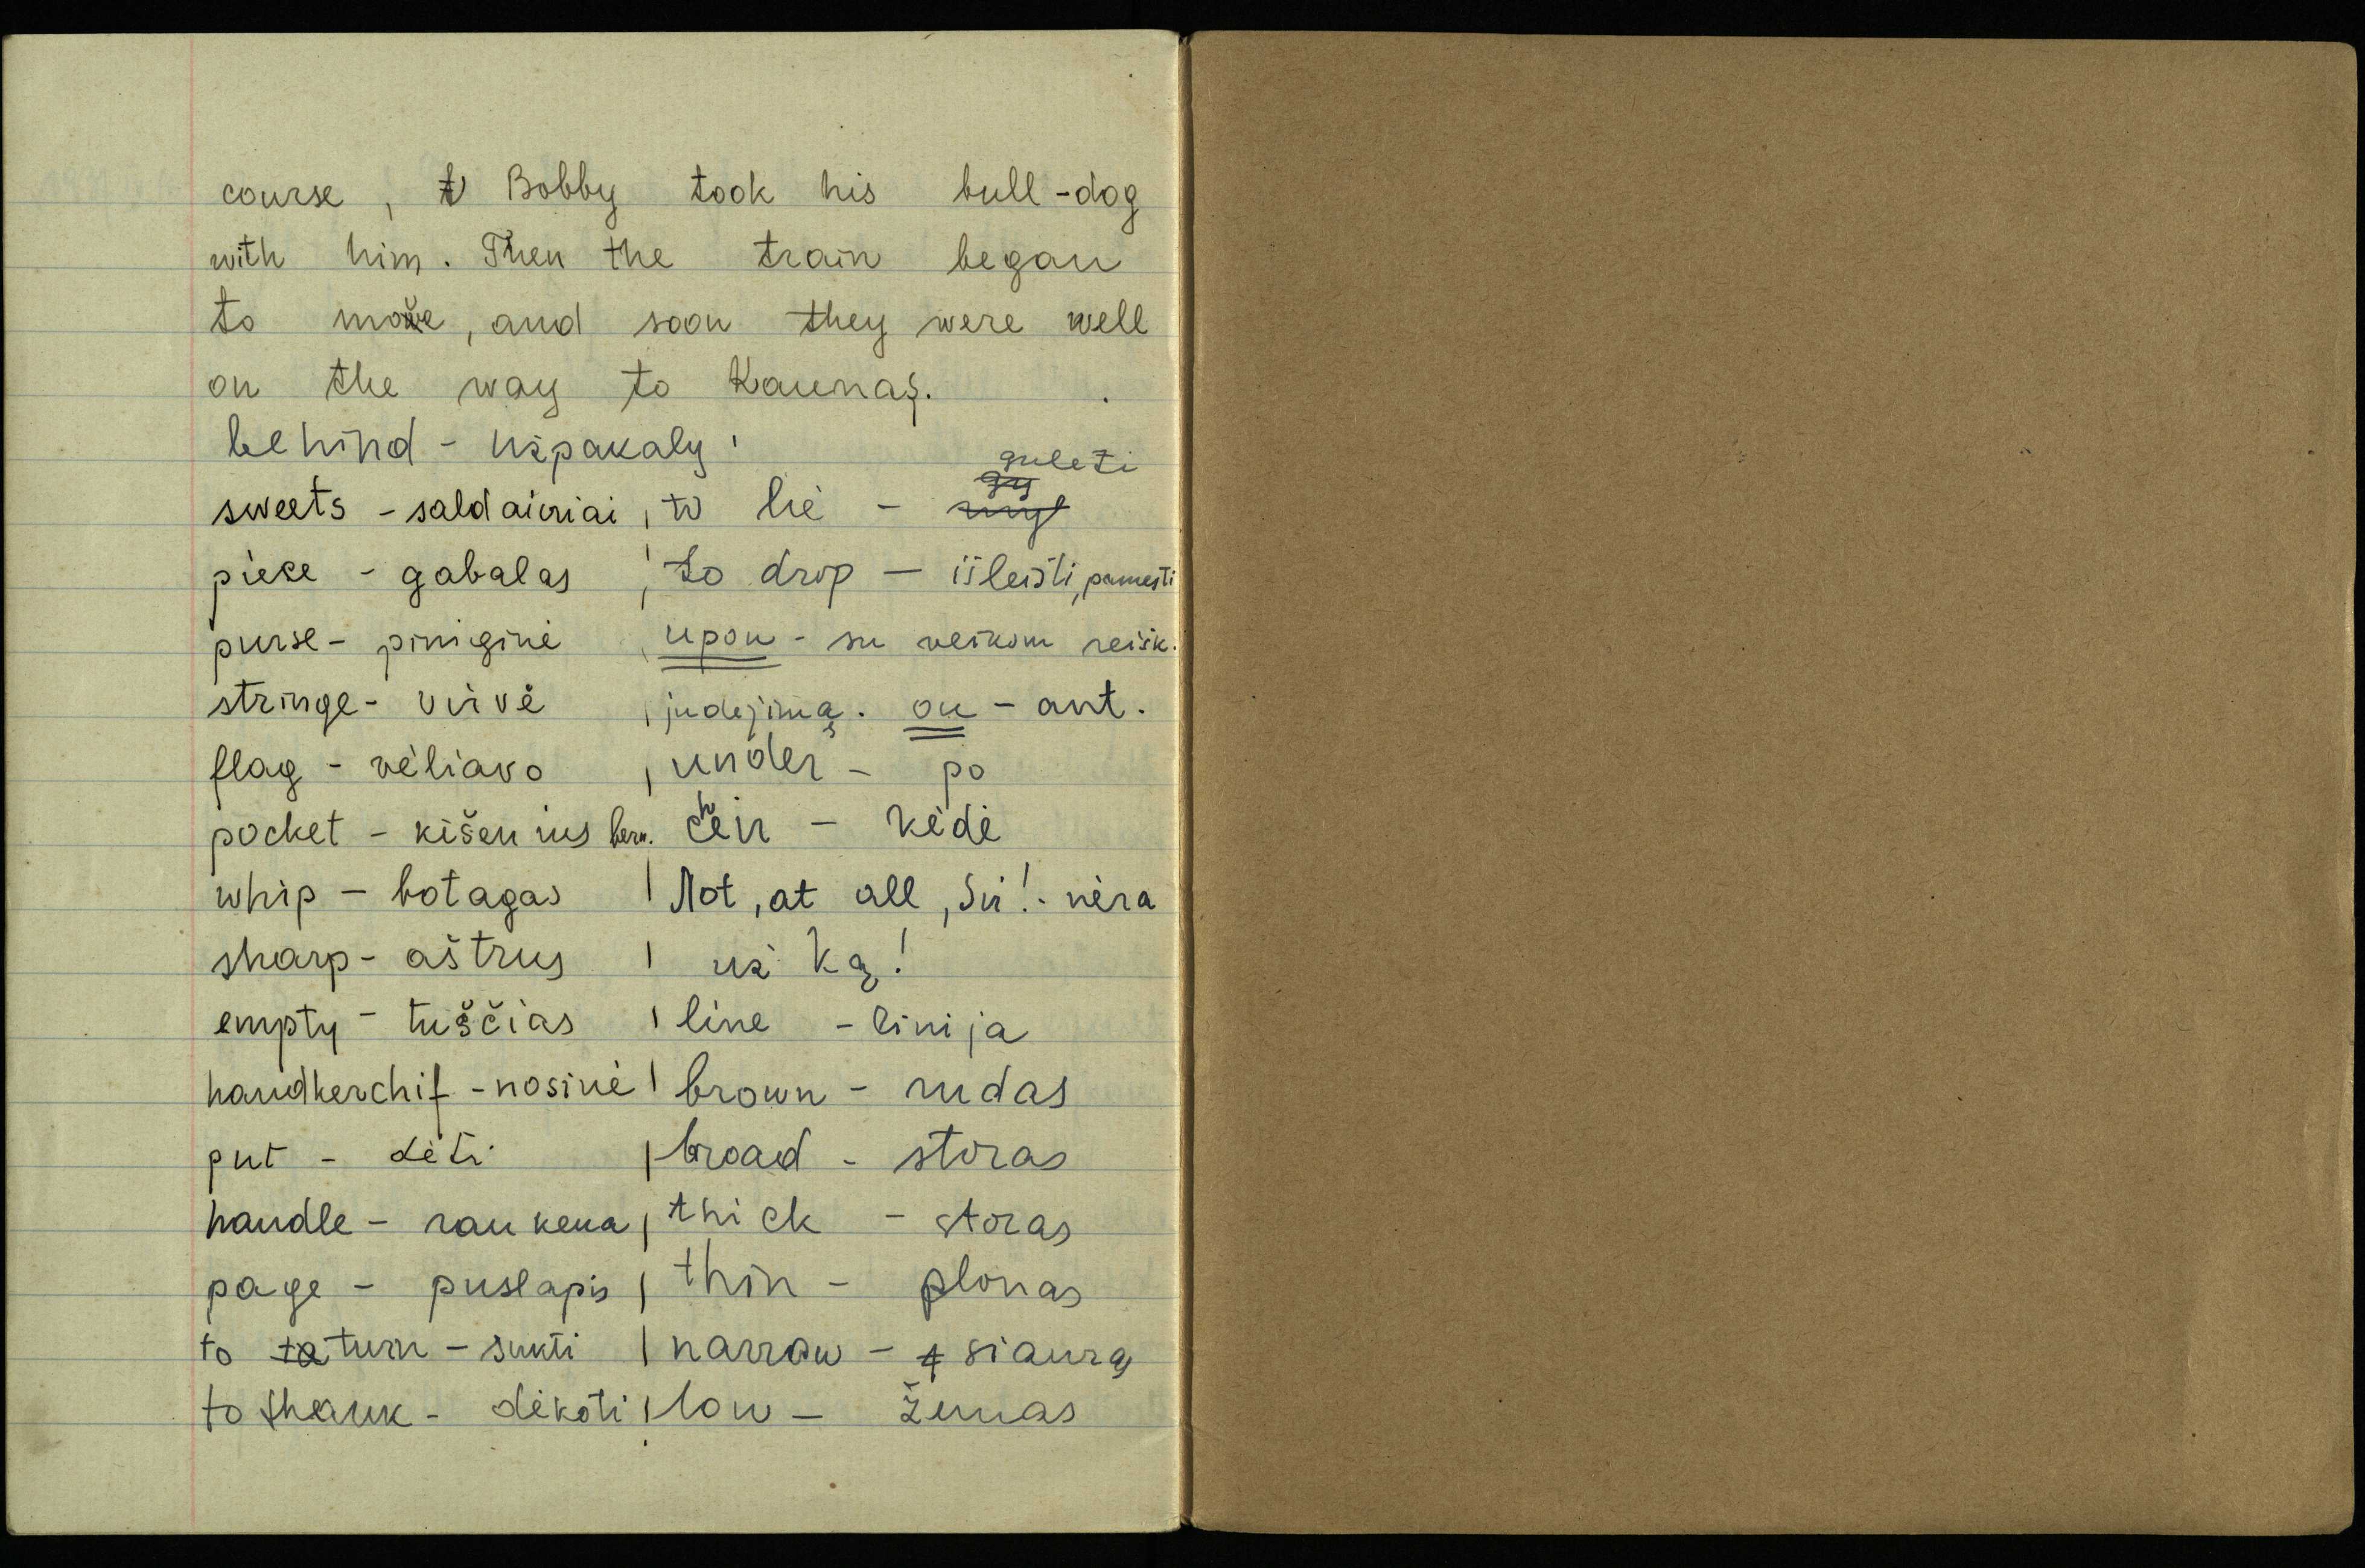 course, Bobby took his bull-dog
with him. Then the train began
to move, and soon they were well
on the way to Kaunas.
behind - užpakaly
sweets - saldainiai | to lie - guleti
piece - gabalas | to drop - išleisti, pamesti
purse - piniginė | upon - su veiksm reišk.
stringe - virvė | judėjimą. on - ant.
flag - vėliava | under - po
pocket - kišenius ber. | cheir - kėdė
whip - botagas | Not, at all, Sir! - nėra
sharp - aštrus | už ką!
empty - tuščias | line - linija
handkerchif - nosinė | brown - rudas
put - dėti | broad - storas
handle - rankena | thick - storas
page - puslapis | thin - plonas
to turn - sukti | narrow - siauras
to thank - dėkoti | low - žemas